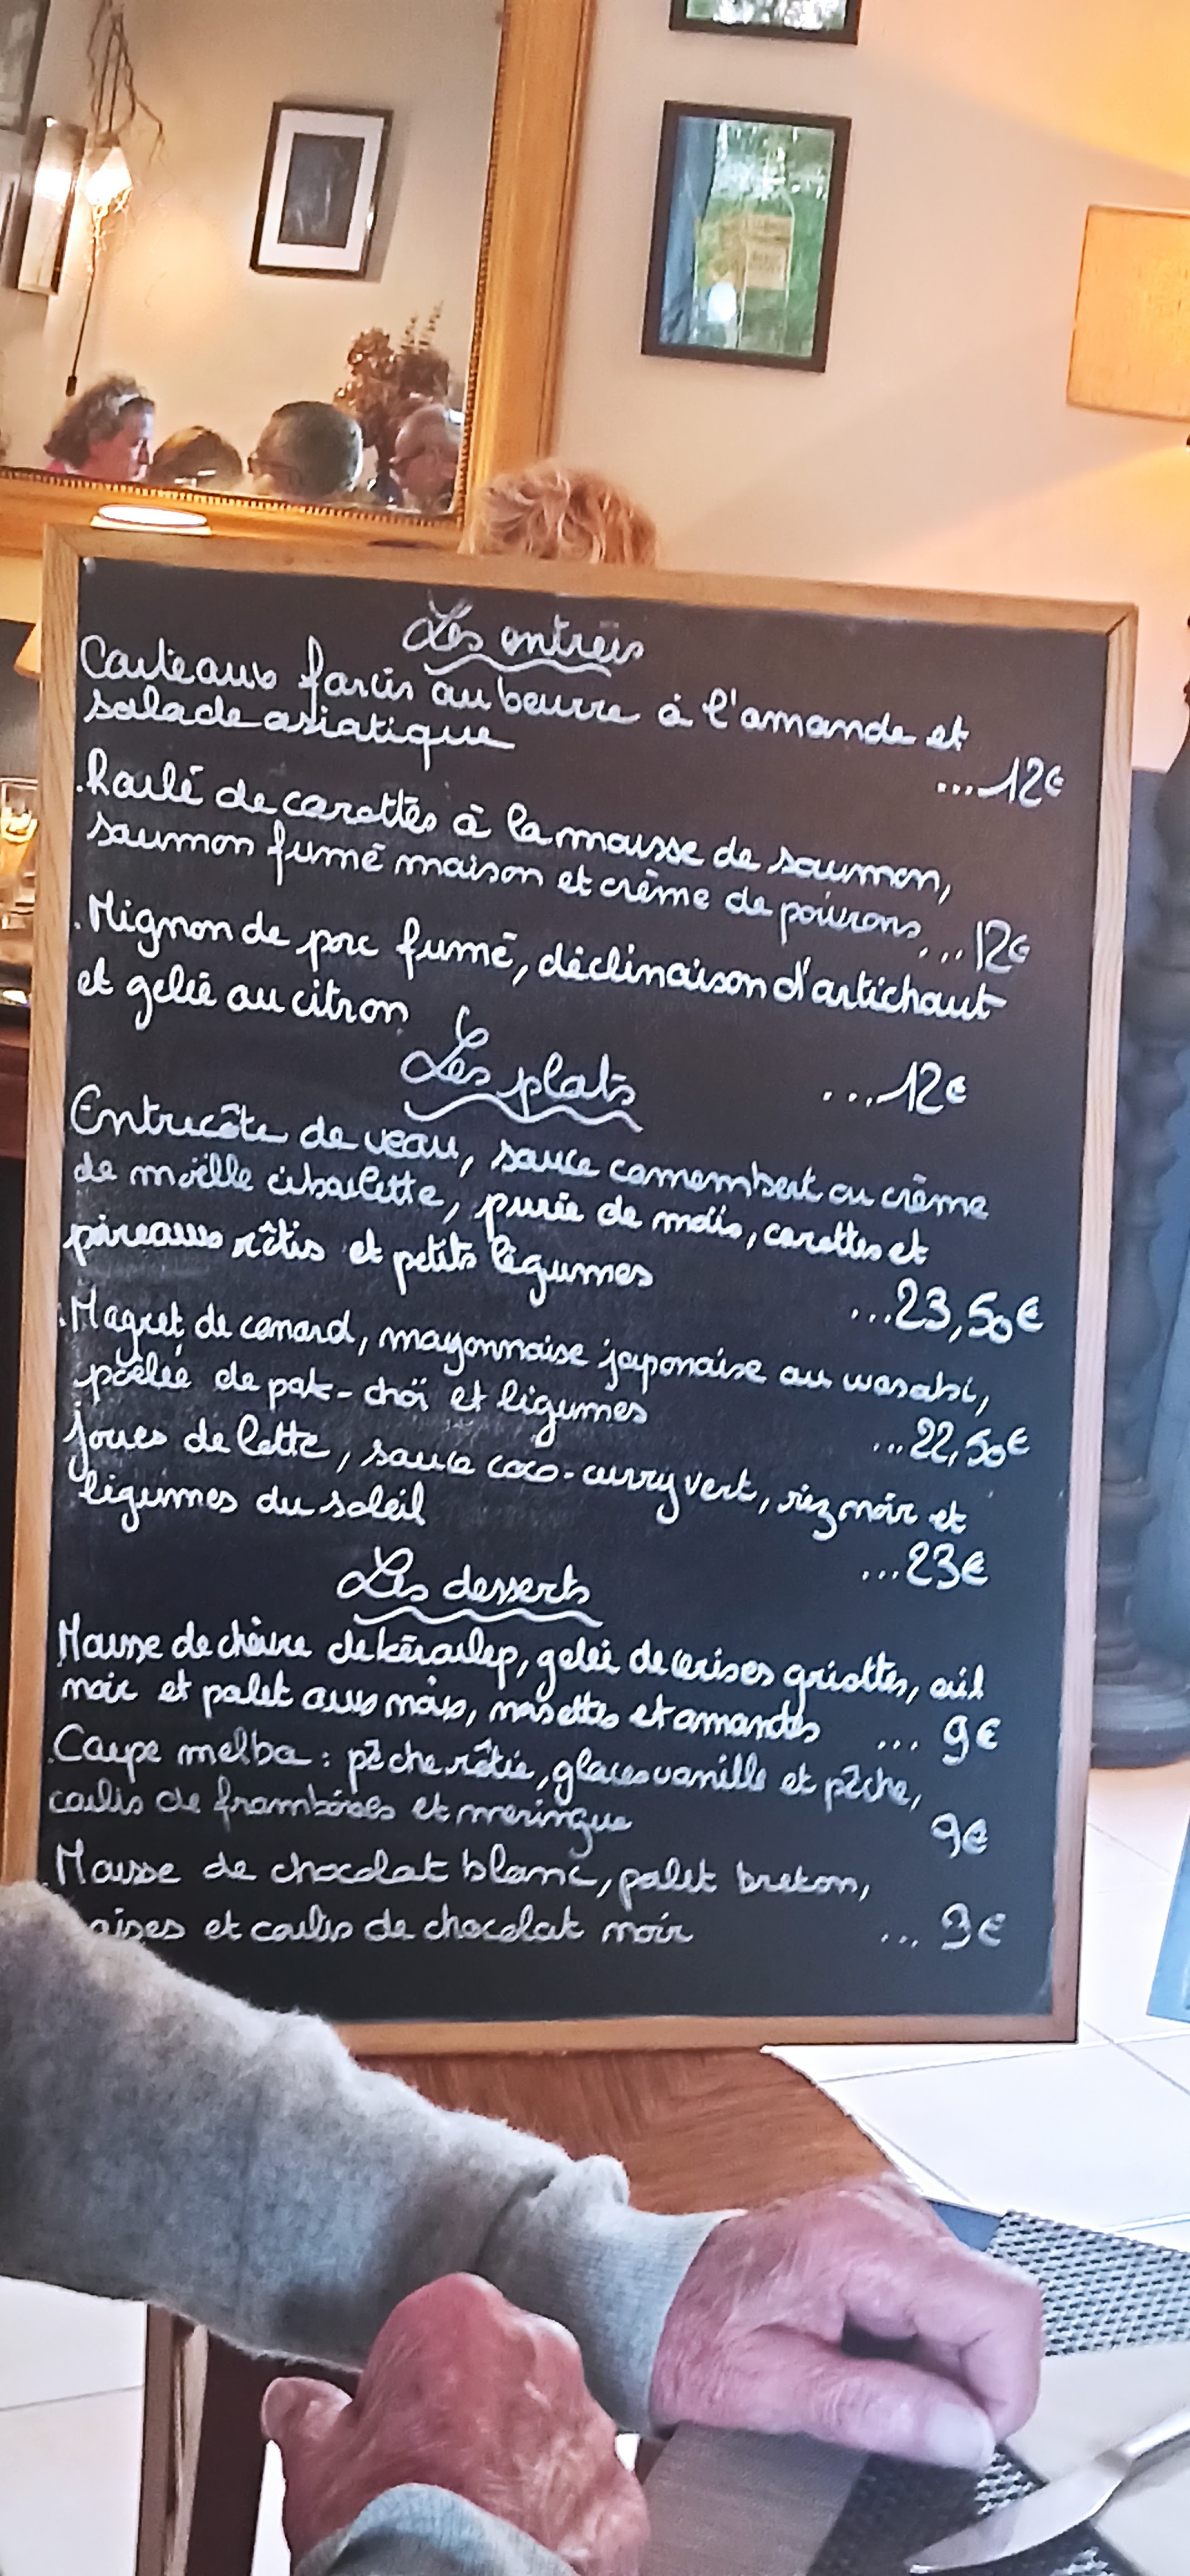 Les entrées
Couteaux farcis au beurre à l'amande et
salade asiatique ...12€
. Roulé de carottes à la mousse de saumon,
saumon fumé maison et crème de poivrons ...12€
. Mignon de porc fumé, déclinaison d'artichaut
et gelée au citron ...12€
Les plats
Entrecôte de veau, sauce camembert ou crème
de moëlle ciboulette, purée de maïs, carottes et
poireaux rôtis et petits légumes ...23,50€
. Magret de canard, mayonnaise japonaise au wasabi,
poêlée de pak-choï et légumes ...22,50€
Joues de lotte, sauce coco-curry vert, riz noir et
légumes du soleil ...23€
Les desserts
Mousse de chèvre de kéroulep, gelée de cerises griottes, ail
noir et palet aux noix, noisettes et amandes ... 9€
. Coupe melba : pêche rôtie, glaces vanille et pêche,
coulis de framboises et meringue 9€
. Mousse de chocolat blanc, palet breton,
aises et coulis de chocolat noir ... 9€